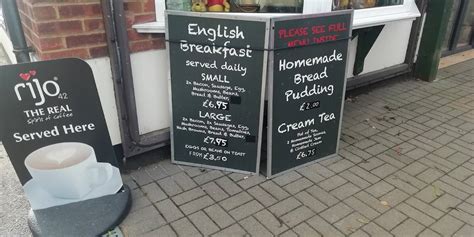 rijo
42
THE REAL
Spirit of Coffee
Served Here
English
Breakfast
served daily
SMALL
2x Bacon, Sausage, Egg,
Mushrooms, Beans,
Bread & Butter
£6.95
LARGE
2x Bacon, 2x Sausages, Egg,
Mushrooms, Beans, Tomatoes,
Hash Browns, Bread & Butter
£7.95
EGGS OR BEANS ON TOAST
FROM £3.50
PLEASE SEE FULL
MENU INSIDE
Homemade
Bread
Pudding
£2.00
Cream Tea
Pot of Tea,
2 Homemade Scones
Jam
& Clotted Cream
£6.75